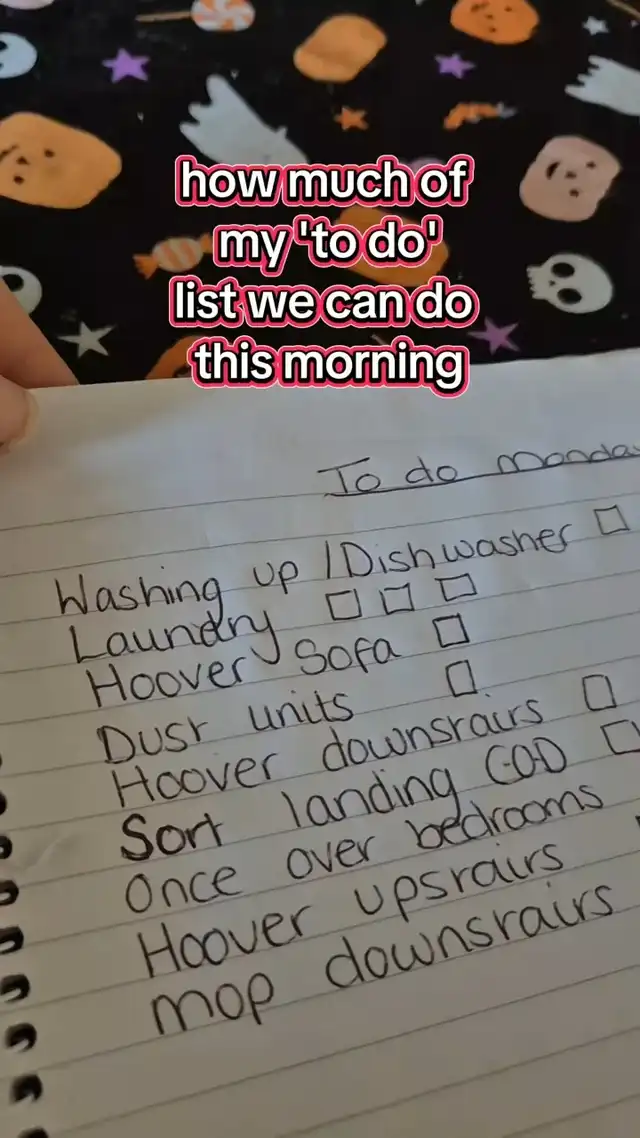 how much of
my 'to do'
list we can do
this morning
To do monday
Washing up /Dishwasher
Laundry
Hoover Sofa
Dust units
Hoover downsrairs
Sort landing COD
Once over bedrooms
Hoover upsrairs
mop downsrairs